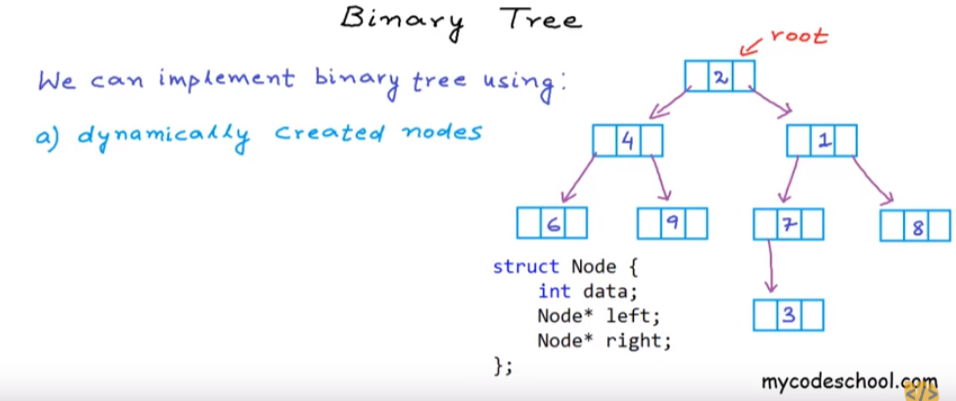 Binary Tree
root
We can implement binary tree using:
2
a) dynamically created nodes
4
1
6
9
7
8
struct Node {
int data;
Node* left;
3
Node* right;
};
mycodeschool.com
</>